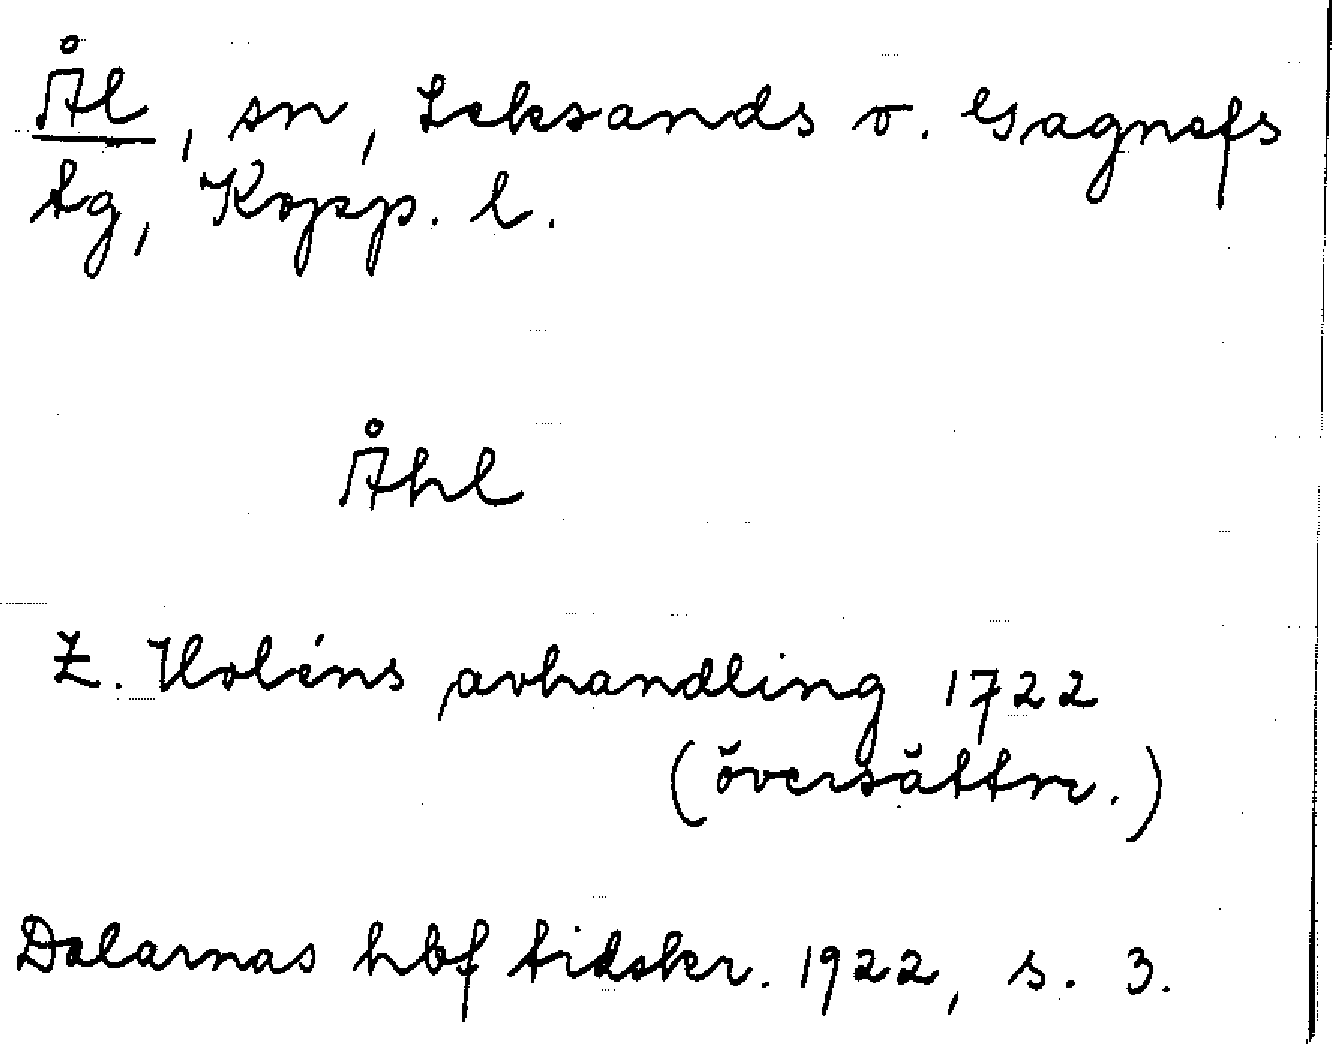 Ål, sn, Leksands o. Gagnefs
tg, Kopp. l.
Åhl
Z. Holéns avhandling 1722
(översättn.)
Dalarnas hbf tidskr. 1922, s. 3.